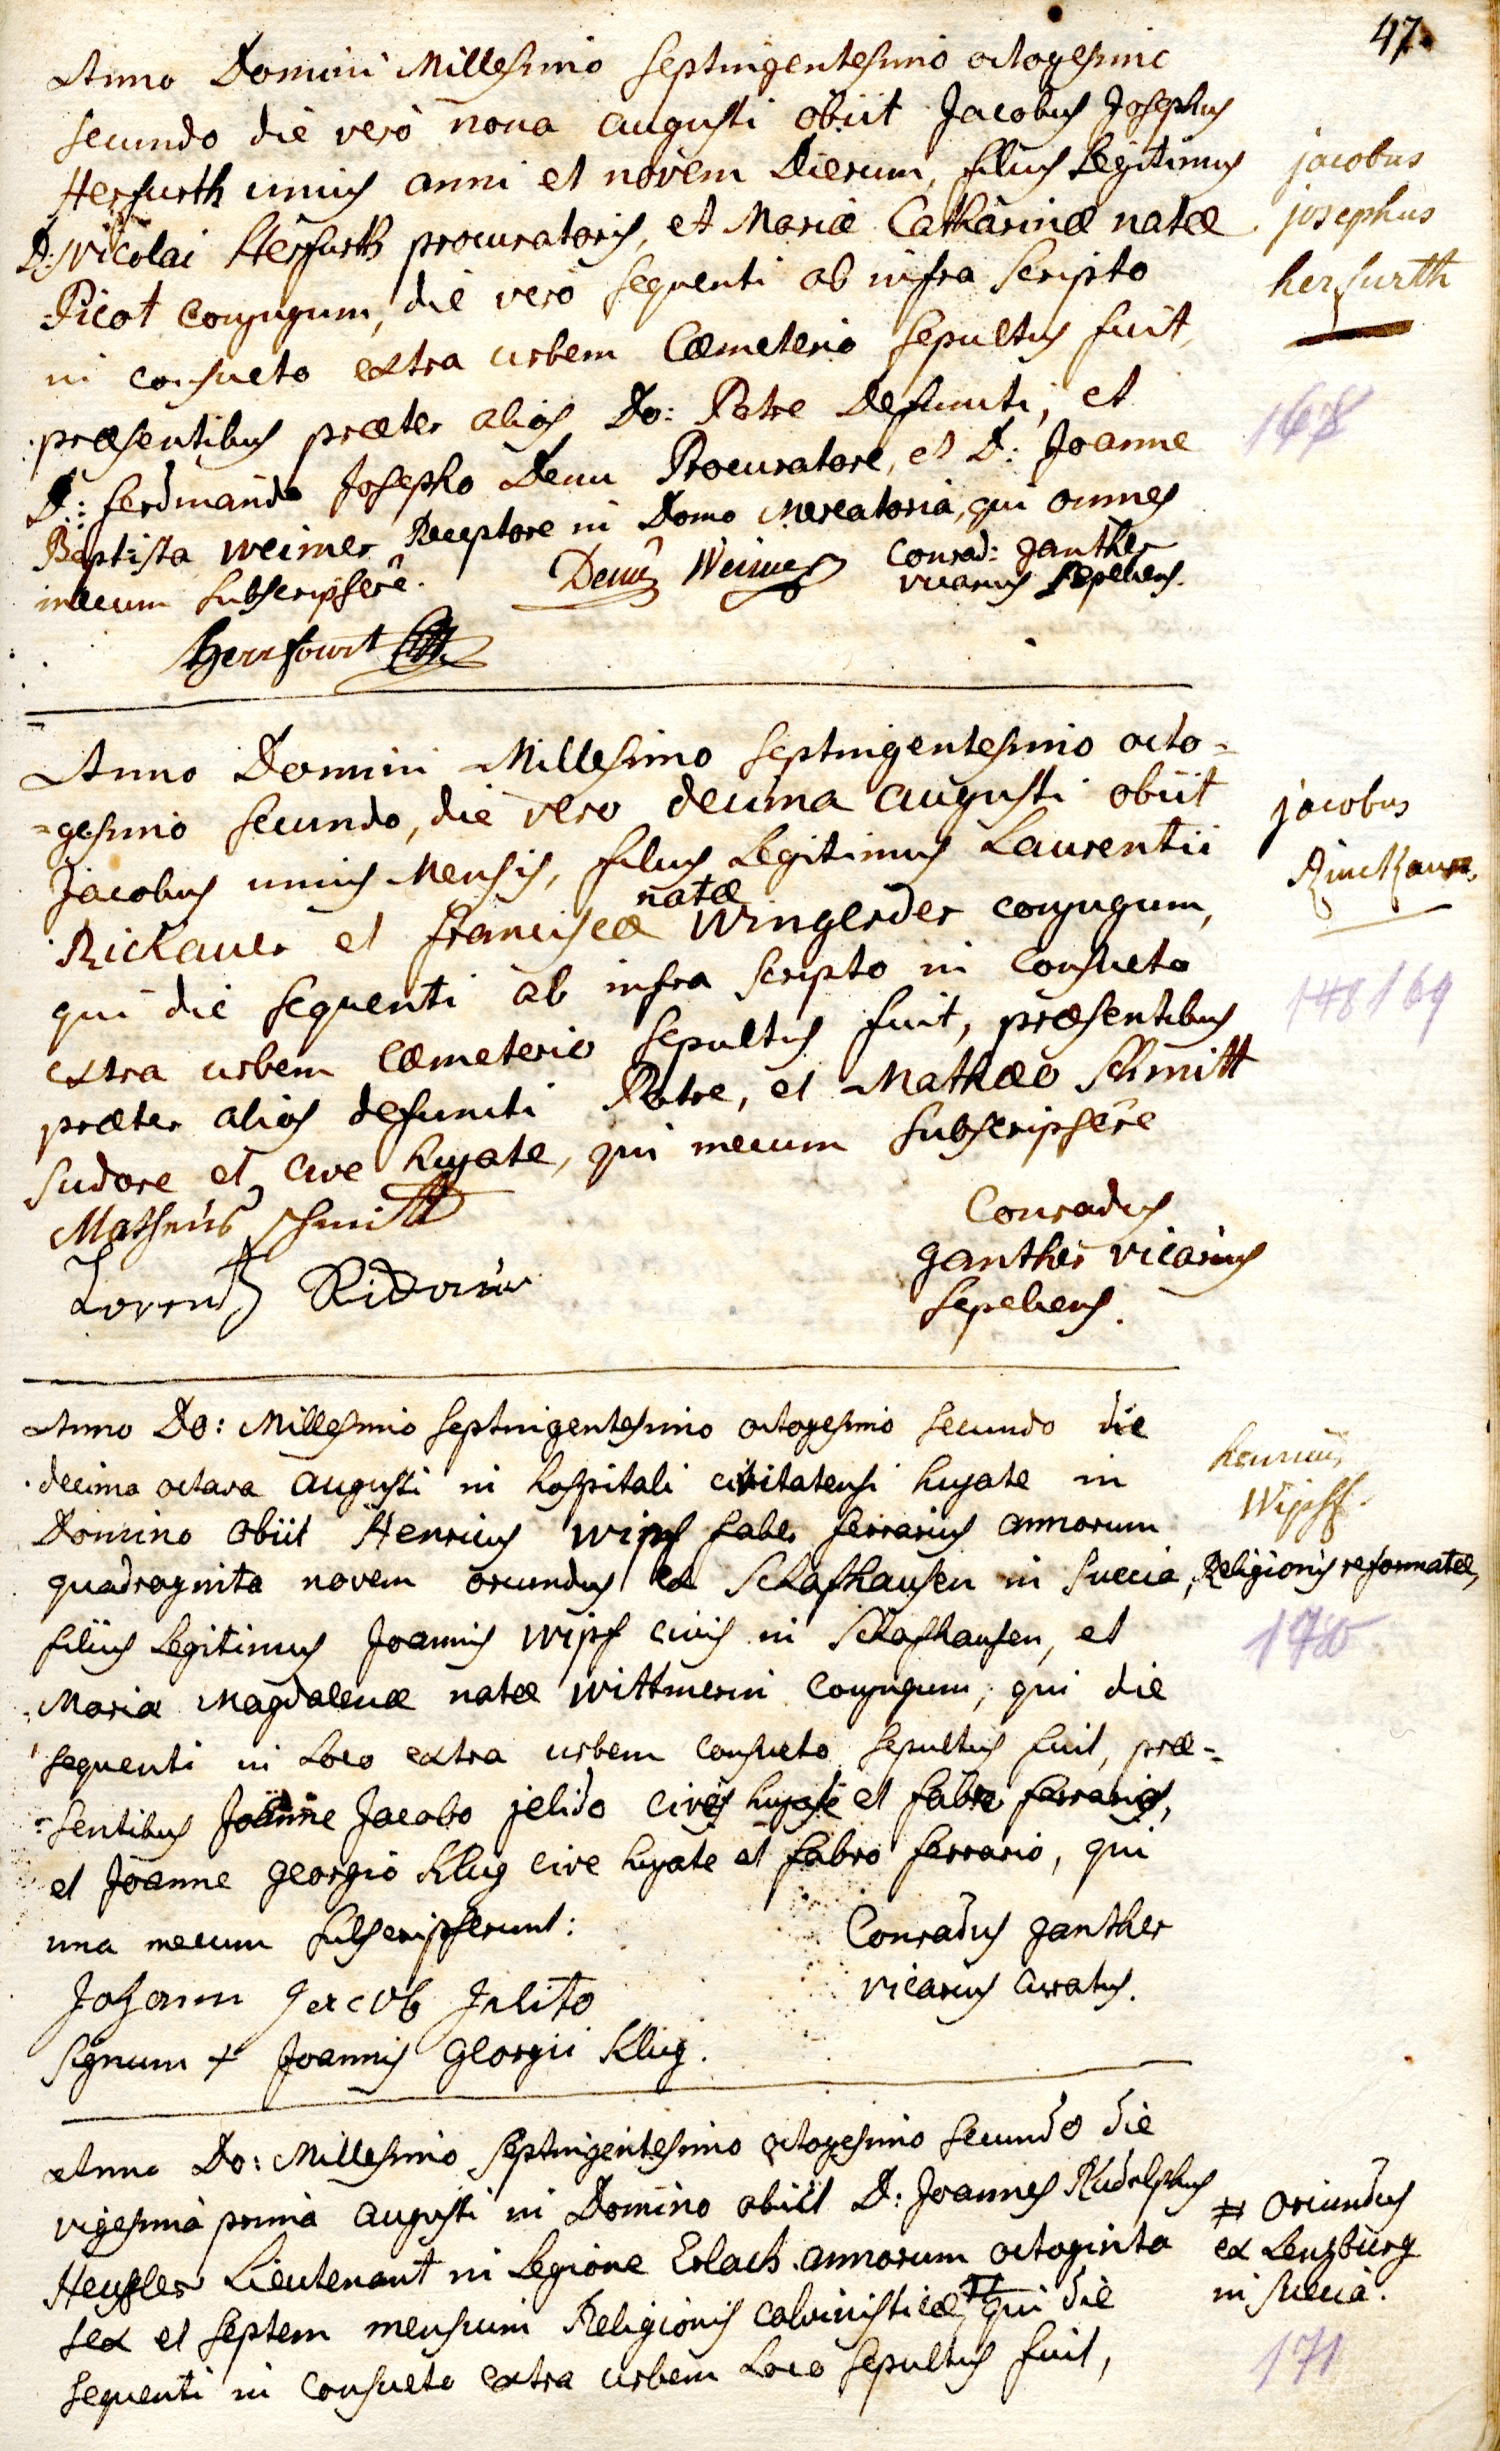 47.
Anno Domini Millesimo Septingentesimo octogesimo
secundo die verò nona augusti obiit Jacobus Josephus
Herfurth unius anni et novem Dierum, filius Legitimus
D: Nicolai Herfurth procuratoris, et Mariæ Catharinæ natæ
Picot conjugum, die verò sequenti ab infra scripto
in consueto extra urbem Cæmeterio sepultus fuit,
præsentibus præter alios Do: Patre Defuncti, et
D: ferdinando Josepho Demi Procuratore, et D: Joanne
Baptista Weimer Receptore in Domo Mercatoria, qui omnes
mecum subscripsêre.
Weimer
Conrad: Janther
vicarius sepeliens.
jacobus
josephus
herfurth
168
Anno Domini Millesimo septingentesimo octo=
=gesimo secundo, die vero decima augusti obiit
Jacobus unius Mensis, filius Legitimus Laurentii
Rickauer et franciscæ natæ Wingerder conjugum,
qui die sequenti ab infra scripto in Consueto
extra urbem Cæmeterio sepultus fuit, præsentibus
præter alios defuncti Patre, et Mathæo Schmitt
sudore et cive hujate, qui mecum subscripsêre
Matheus Schmitt
Lorentz
Conradus
Janther vicarius
sepeliens.
jacobus
169
Anno Do: Millesimo septingentesimo octogesimo secundo die
decima octava augusti in hospitali civitatensi hujate in
Domino obiit Henricus Wipf faber ferrarius annorum
quadraginta novem oriundus ex Schafhausen in Suecia, Religionis reformatæ,
filius Legitimus Joannis Wipf civis in Schafhausen, et
Mariæ Magdalenæ natæ Wittmerin conjugum, qui die
sequenti in Loco extra urbem consueto sepultus fuit, præ=
=sentibus Joanne Jacobo jelido cive hujate et fabro ferrario,
et Joanne georgio Klug cive hujate et fabro ferrario, qui
una mecum subscripserunt:
Johann Jacob Jelito
Signum + Joannis Georgii Klug.
Conradus Janther
vicarius curatus.
henricus
Wipff.
170
Anno Do: Millesimo septingentesimo octogesimo secundo die
vigesima prima augusti in Domino obiit D: Joannes Rudolphus
Lieutenant in Legione Erlach annorum octoginta
sex et septem mensium Religionis calvinisticæ # qui die
sequenti in Consueto extra urbem Loco sepultus fuit,
# oriundus
ex Lenzburg
in Suecia.
171